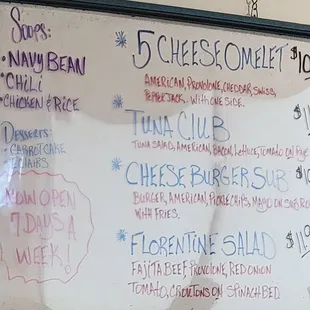 Soups:
• Navy Bean
• Chili
• Chicken & Rice
Desserts:
• Carrot Cake
• Eclairs
Now Open
7 Days A
Week!
* 5 Cheese Omelet $10
American, Provolone, Cheddar, Swiss,
Pepper Jack. With one side.
* Tuna Club
Tuna Salad, American, Bacon, Lettuce, Tomato on Rye
* Cheese Burger Sub
Burger, American, Pickle Chips, Mayo on Sub Roll
with Fries.
* Florentine Salad $11
Fajita Beef, Provolone, Red Onion
Tomato, Croutons on Spinach Bed